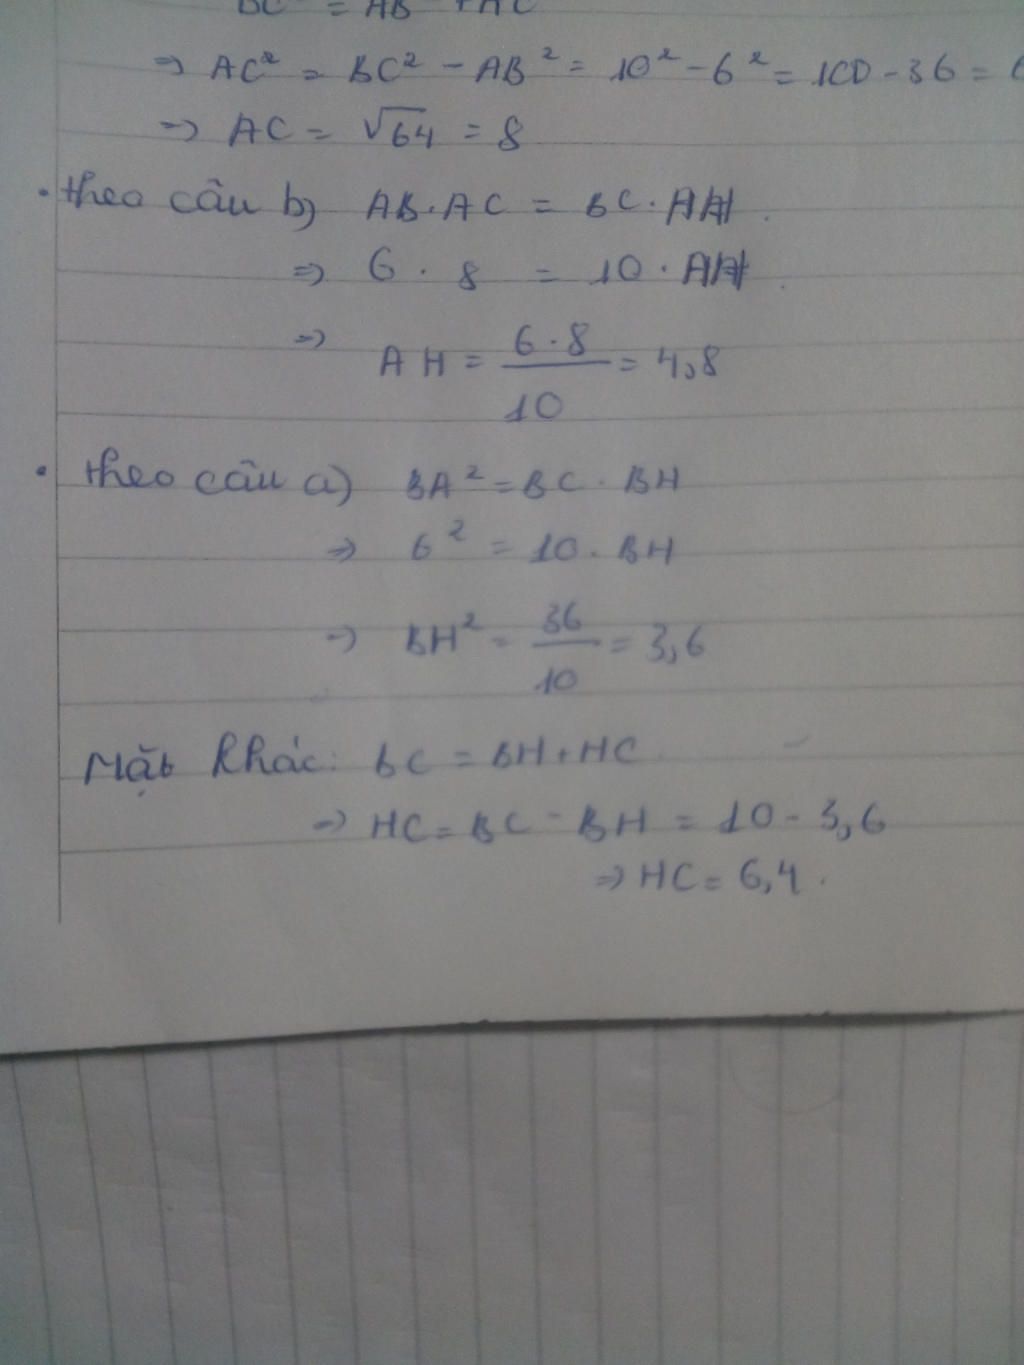 BC² = AB² + AC²
=> AC² = BC² - AB² = 10² - 6² = 100 - 36 =
=> AC = √64 = 8
• theo câu b) AB.AC = BC.AH.
=> 6 . 8 = 10 . AH.
=> AH = 6.8/10 = 4,8
• theo câu a) BA² = BC . BH
=> 6² = 10 . BH
=> BH² = 36/10 = 3,6
Mặt khác: BC = BH + HC
=> HC = BC - BH = 10 - 3,6
=> HC = 6,4.